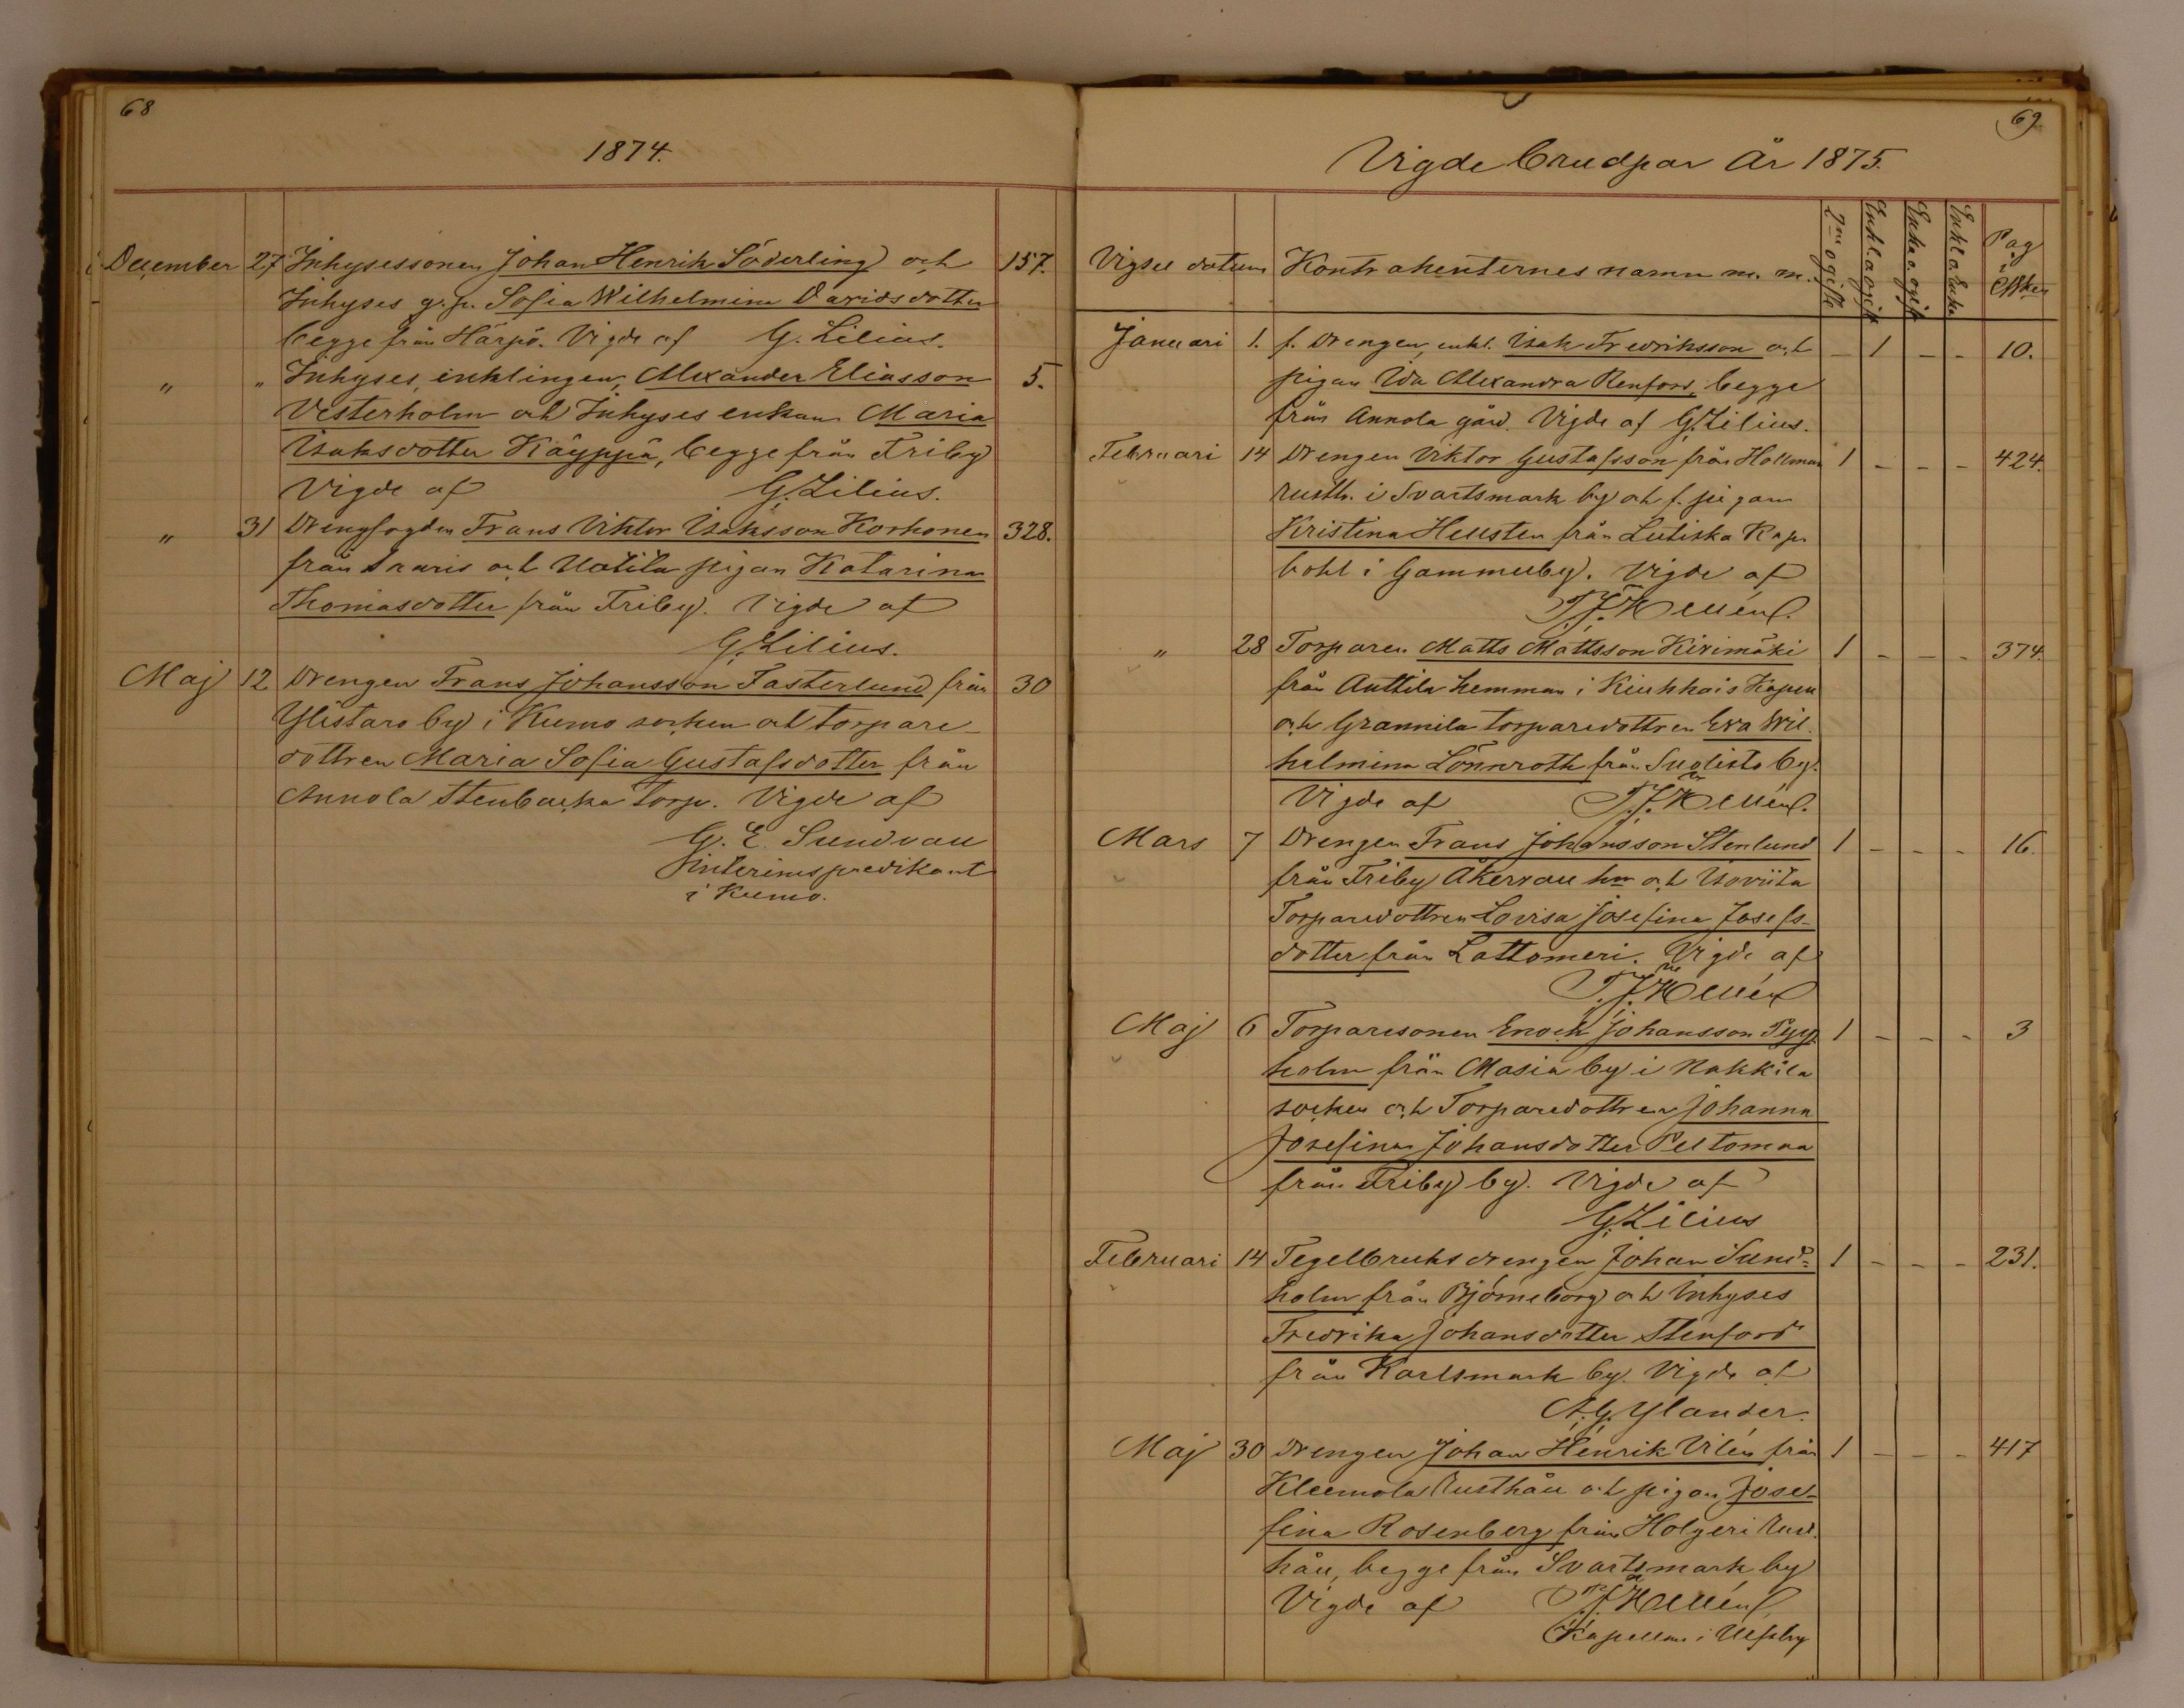 68
1874.
December 27 Inhysessonen Johan Henrik Söderling och 157.
Inhyses g. p. Sofia Wilhelmina Davidsdotter
begge från Härpö. Vigde af G. Lilius.
" " Inhyses, enklingen, Alexander Eliasson 5.
Vesterholm och Inhyses enkan Maria
Isaksdotter Käyppä, begge från Friby
Vigde af G. Lilius.
" 31 Drengfogden Frans Viktor Isaksson Korhonen 328.
från Saaris och Uotila pigan Katarina
Thomasdotter från Friby. Vigde af
G. Lilius.
Maj 12 Drengen Frans Johansson Fasterlund från 30
Ylistaro by i Kumo socken och torpare-
dottren Maria Sofia Gustafsdotter från
Annola Stenbacka torp. Vigde af
G. E. Sundvall
interimspredikant
i Kumo.
69
Vigde Brudpar År 1875.
Vigsel datum Kontrahenternes namn m. m. 2ne ogifte Enkl. o ogift Enka o. ogift Enkl o. Enka Pag i BKen
Januari 1. f. Drengen, enkl. Isak Fredriksson och - 1 - - 10.
pigan Ida Alexandra Renfors, begge
från Annola gård. Vigde af G. Lilius.
Februari 14 Drengen Viktor Gustafsson från Hollman 1 - - - 424.
rusth. i Svartsmark by och f. pigan
Kristina Hellsten från Lutiska Kap.
bohl i Gammelby. Vigde af
" 28 Torparen Matts Mattsson Kivimäki 1 - - - 374.
från Anttila hemman i Kiukkais Kapell
och Grannila torparedottren Eva Wil-
helmina Lönnroth från Suolisto by.
Vigde af
Mars 7 Drengen Frans Johansson Stenlund 1 - - - 16.
från Friby Åkervall hm och Isoviita
Torparedottren Lovisa Josefina Josefs-
dotter från Lattomeri. Vigde af
Maj 6 Torparesonen Enoch Johansson Pyy- 1 - - - 3
holm från Masia by i Nakkila
socken och Torparedottren Johanna
Josefina Johansdotter Peltomaa
från Friby by. Vigde af
G. Lilius
Februari 14 Tegelbruksdrengen Johan Sund= 1 - - - 231.
holm från Björneborg och Inhyses
Fredrika Johansdotter Stenford
från Karlsmark by. Vigde af
A. G. Ylander.
Maj 30 Drengen Johan Henrik Vilén från 1 - - - 417
Kleemola Rusthåll och pigan Jose-
fina Rosenberg från Holgeri Rust.
håll, begge från Svartsmark by
Vigde af
Kapellan i Ulfsby